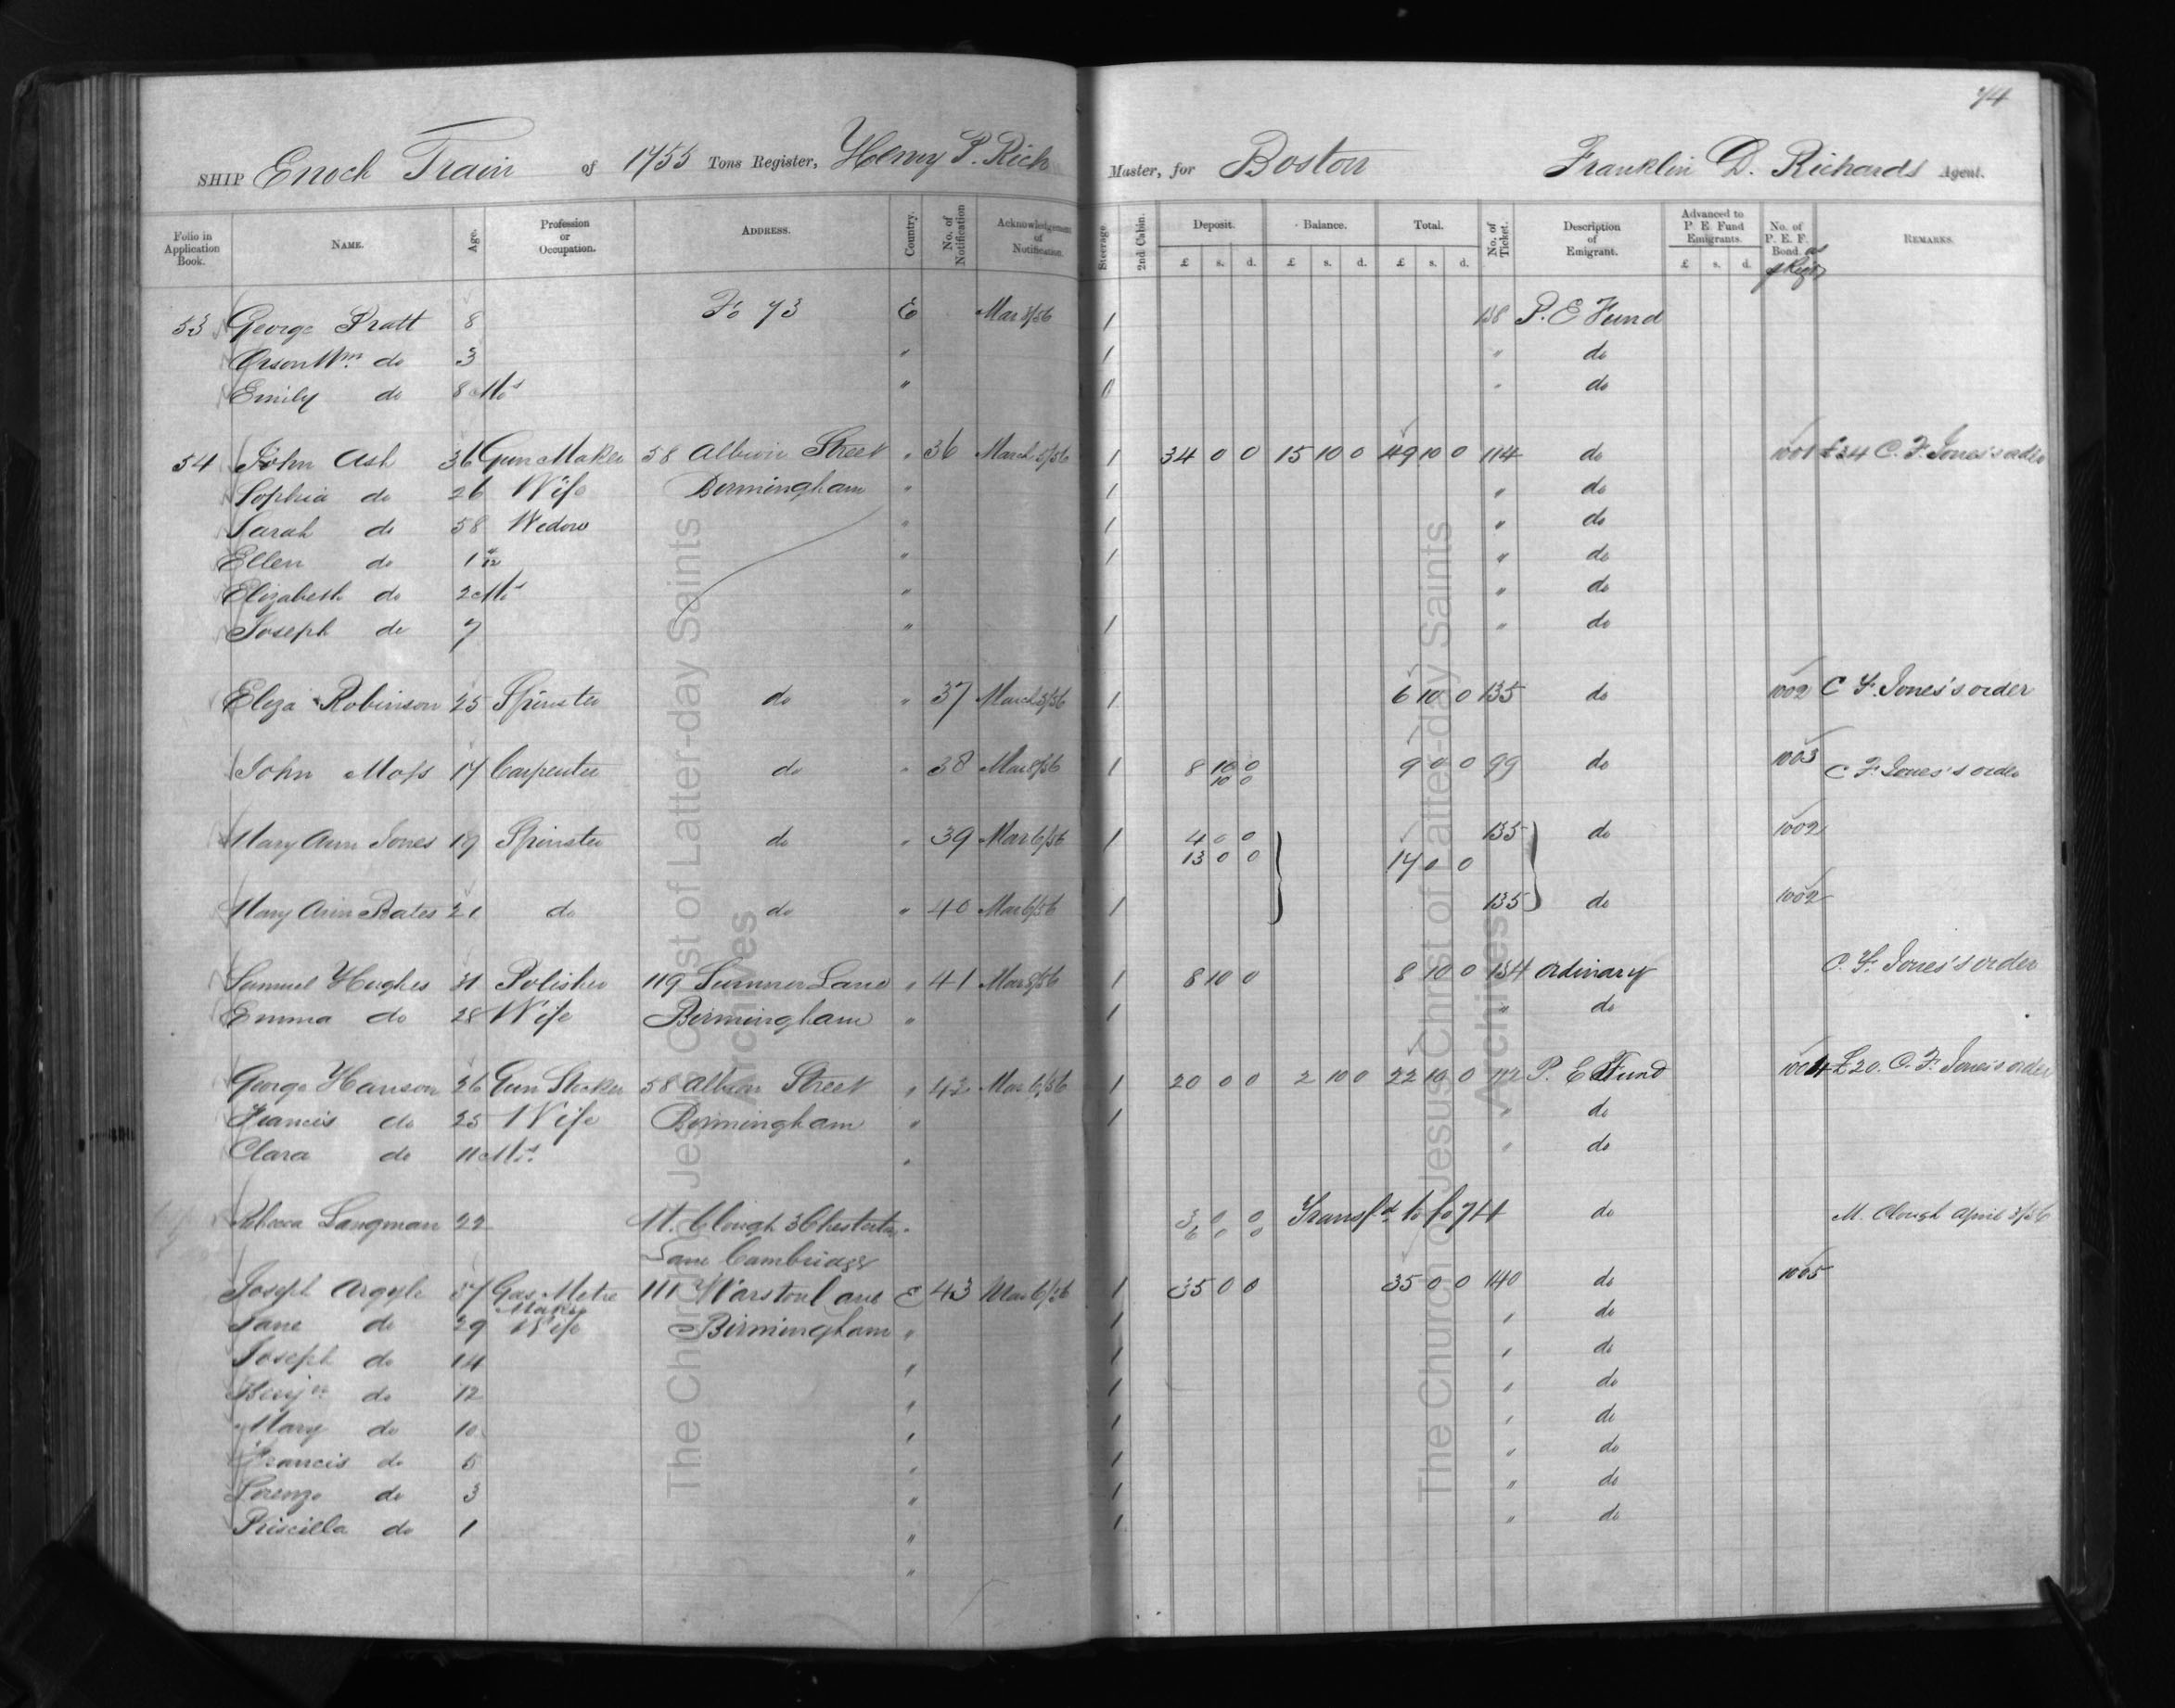 74
SHIP Enoch Train of 1755 Tons Register, Henry P. Rich Master, for Boston Franklin D. Richards Agent.
Folio in Application Book. NAME. Age. Profession or Occupation. ADDRESS. Country. No. of Notification Acknowledgement of Notification. Steerage 2nd Cabin. Deposit. £ s. d. Balance. £ s. d. Total. £ s. d. No. of Ticket. Description of Emigrant. Advanced to P. E. Fund Emigrants. £ s. d. No. of P. E. F. Bond. REMARKS.
53 George Pratt 8 Fo 73 E Mar 3/56 1 138 P. E Fund
Orson Wm. do 3 " 1 " do
Emily do 8 Mos " " do
54 John Ash 36 Gun Maker 58 Albion Street " 36 March 5/56 1 34 0 0 15 10 0 49 10 0 114 do 1001 £34 C. F. Jones's order
Sophia do 26 Wife Birmingham " 1 " do
Sarah do 58 Widow " 1 " do
Ellen do 1 " 1 " do
Elizabeth do 2 Mos " " do
Joseph do 7 " 1 " do
Eliza Robinson 25 Spinster do " 37 March 3/56 1 6 10 0 135 do 1002 C F. Jones's order
John Moss 17 Carpenter do " 38 Mar 8/56 1 8 10 0 9 0 0 99 do 1003 C F Jones's order
10 0
Mary Ann Jones 19 Spinster do " 39 Mar 6/56 1 4 0 0 135 do 1002
13 0 0 17 0 0
Mary Ann Bates 21 do do " 40 Mar 6/56 1 135 do 1002
Samuel Hughes 31 Polisher 119 Summer Lane " 41 Mar 8/56 1 8 10 0 8 10 0 134 ordinary C. F. Jones's order
Emma do 28 Wife Birmingham " 1 " do
George Hanson 26 Gun Stocker 58 Albion Street " 42 Mar 6/56 1 20 0 0 2 10 0 22 10 0 112 P. E Fund 1004 £20. C. F. Jones's order
Francis do 25 Wife Birmingham " 1 " do
Clara do 11 Mos. " " do
Rebecca Langman 22 M. Clough 3 Chesterton " 3 0 0 Transfd to fo 74 do M. Clough April 3/56
Lane Cambridge 6 0 0
Joseph Argyle 37 Gas Metre Maker 111 Warston Lane E 43 Mar 6/56 1 35 0 0 35 0 0 140 do 1005
Jane do 29 Wife Birmingham " 1 " do
Joseph do 14 " 1 " do
Benjn do 12 " 1 " do
Mary do 10 " 1 " do
Francis do 5 " 1 " do
Lorenzo do 3 " 1 " do
Priscilla do 1 " 1 " do
"
The Church of Jesus Christ of Latter-day Saints
Archives
The Church of Jesus Christ of Latter-day Saints
Archives